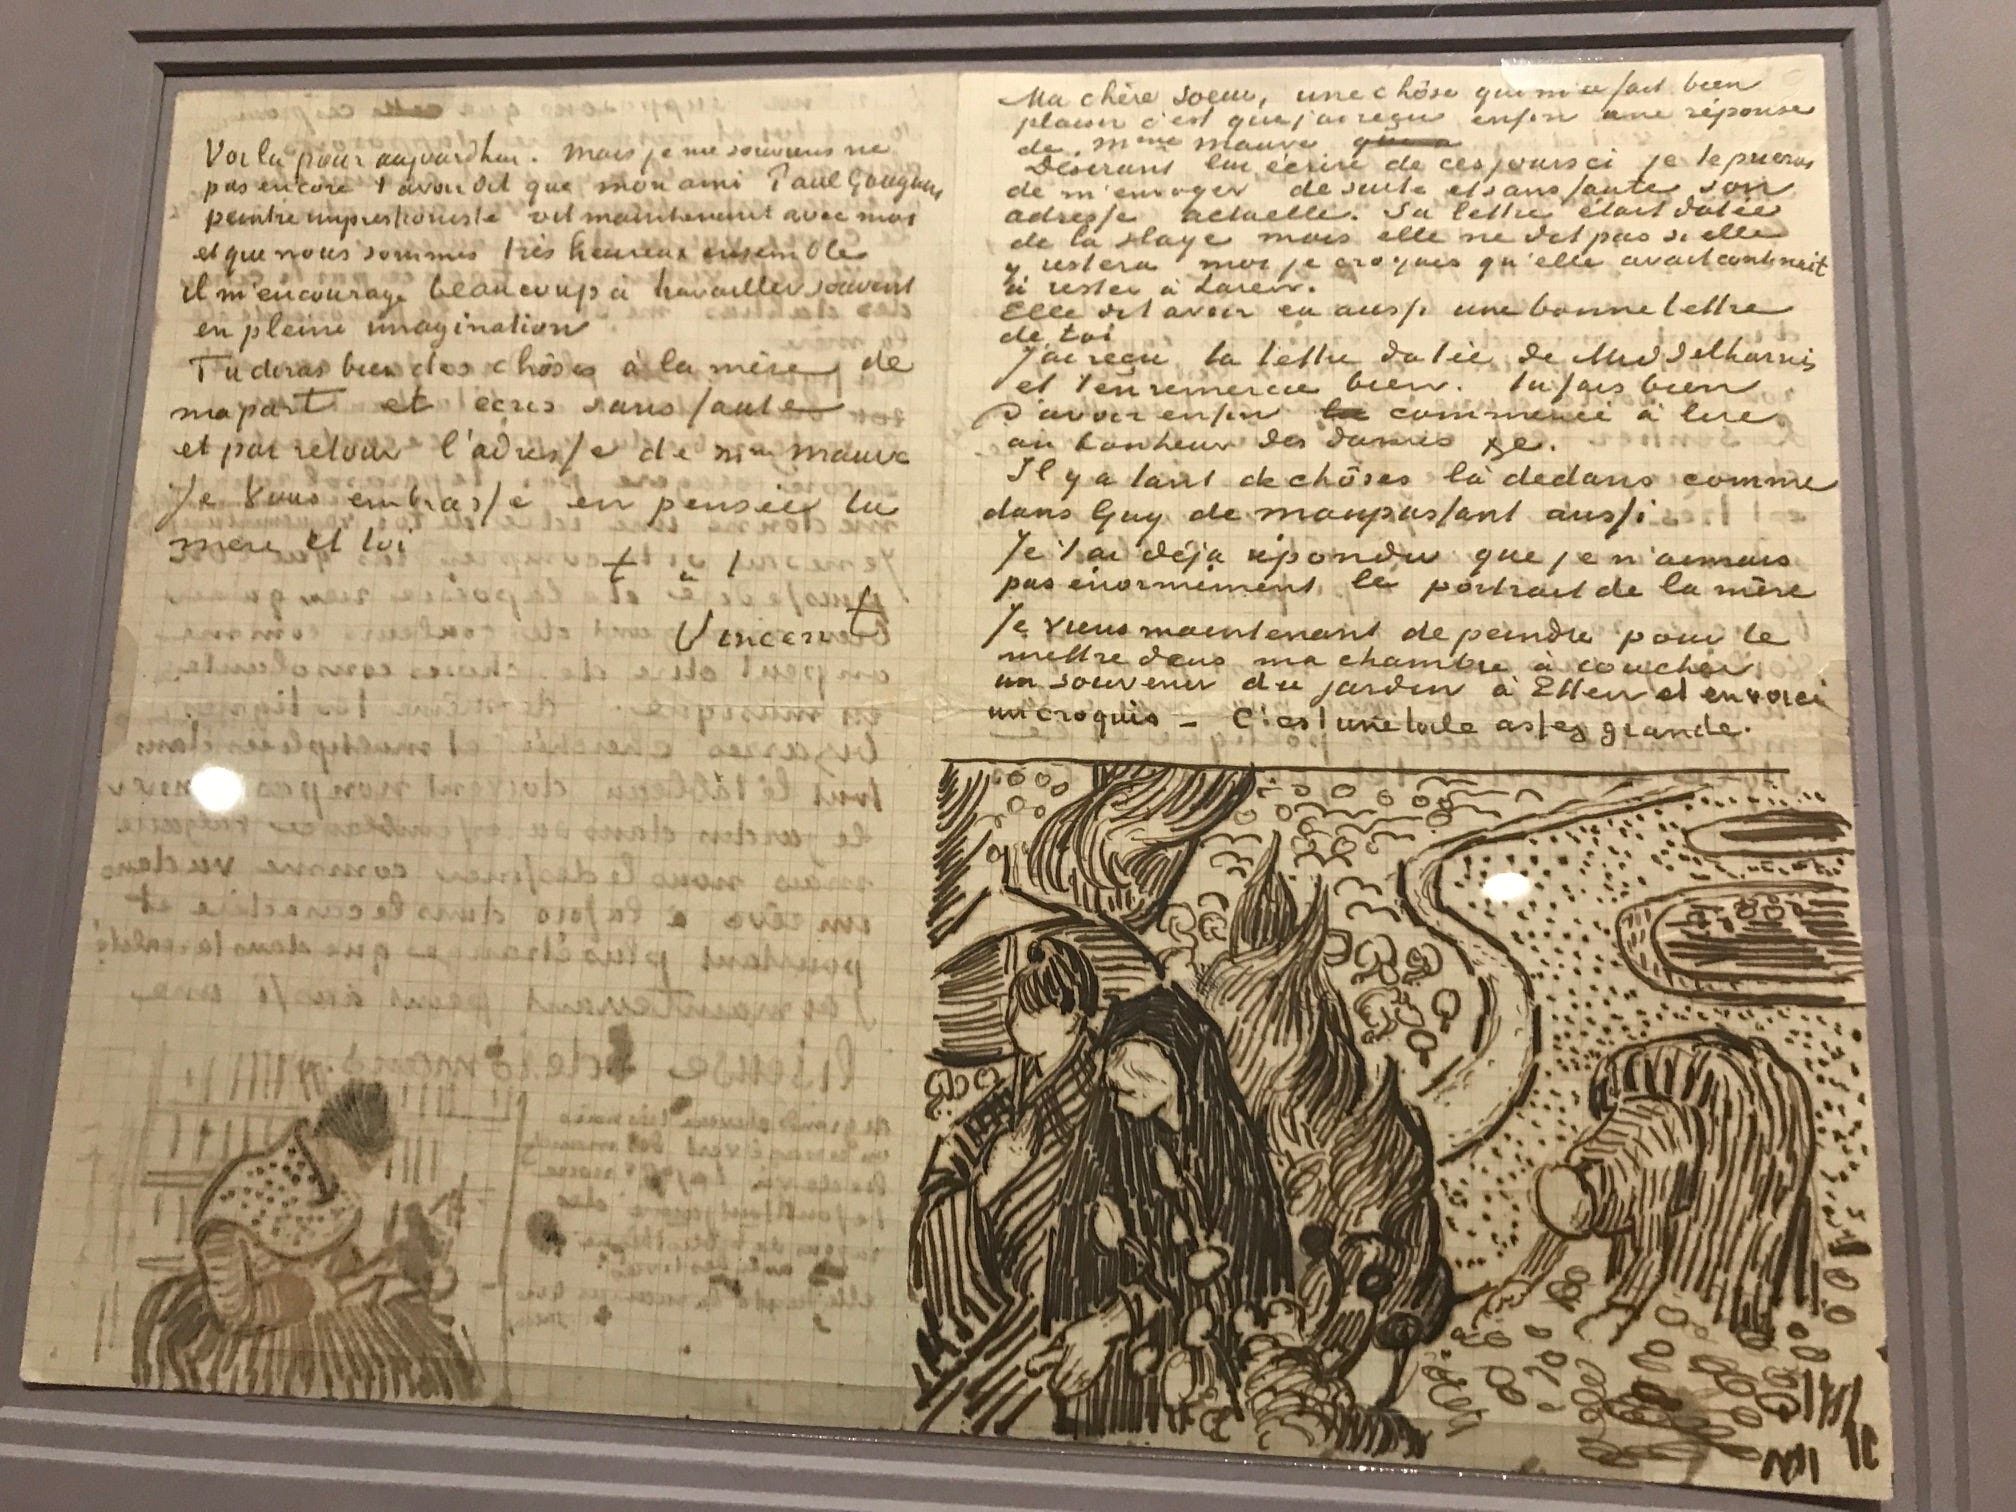 Voila pour aujourdhui. Mais je me souviens ne
pas encore t'avoir dit que mon ami Paul Gauguin,
peintre impressioniste vit maintenant avec moi
et que nous sommes très heureux ensemble
il m'encourage beaucoup à travailler souvent
en pleine imagination
Tu diras bien des chôses à la mère de
ma part et ecris sans faute
et par retour l'adresse de Mme Mauve
Je vous embrasse en pensée la
mere et toi
t. à t.
Vincent
Ma chère soeur, une chôse qui m'a fait bien
plaisir c'est que j'ai reçu enfin une réponse
de Mme Mauve
Désirant lui écrire de ces jours ci je te prierais
de m'envoyer de suite et sans faute son
adresse actuelle. Sa lettre était datée
de la Haye mais elle ne dit pas si elle
y restera moi je croyais qu'elle avait continué
à rester à Laren.
Elle dit avoir eu aussi une bonne lettre
de toi
J'ai reçu ta lettre datée de Middelharnis
et t'en remercie bien. Tu fais bien
d'avoir enfin commencé à lire
au bonheur des dames &c.
Il y a tant de chôses là dedans comme
dans Guy de Maupassant aussi
Je t'ai déja répondu que je n'aimais
pas énormément le portrait de la mère
Je viens maintenant de peindre pour le
mettre dans ma chambre à coucher
un souvenir du jardin à Etten et en voici
un croquis – C'est une toile assez grande.